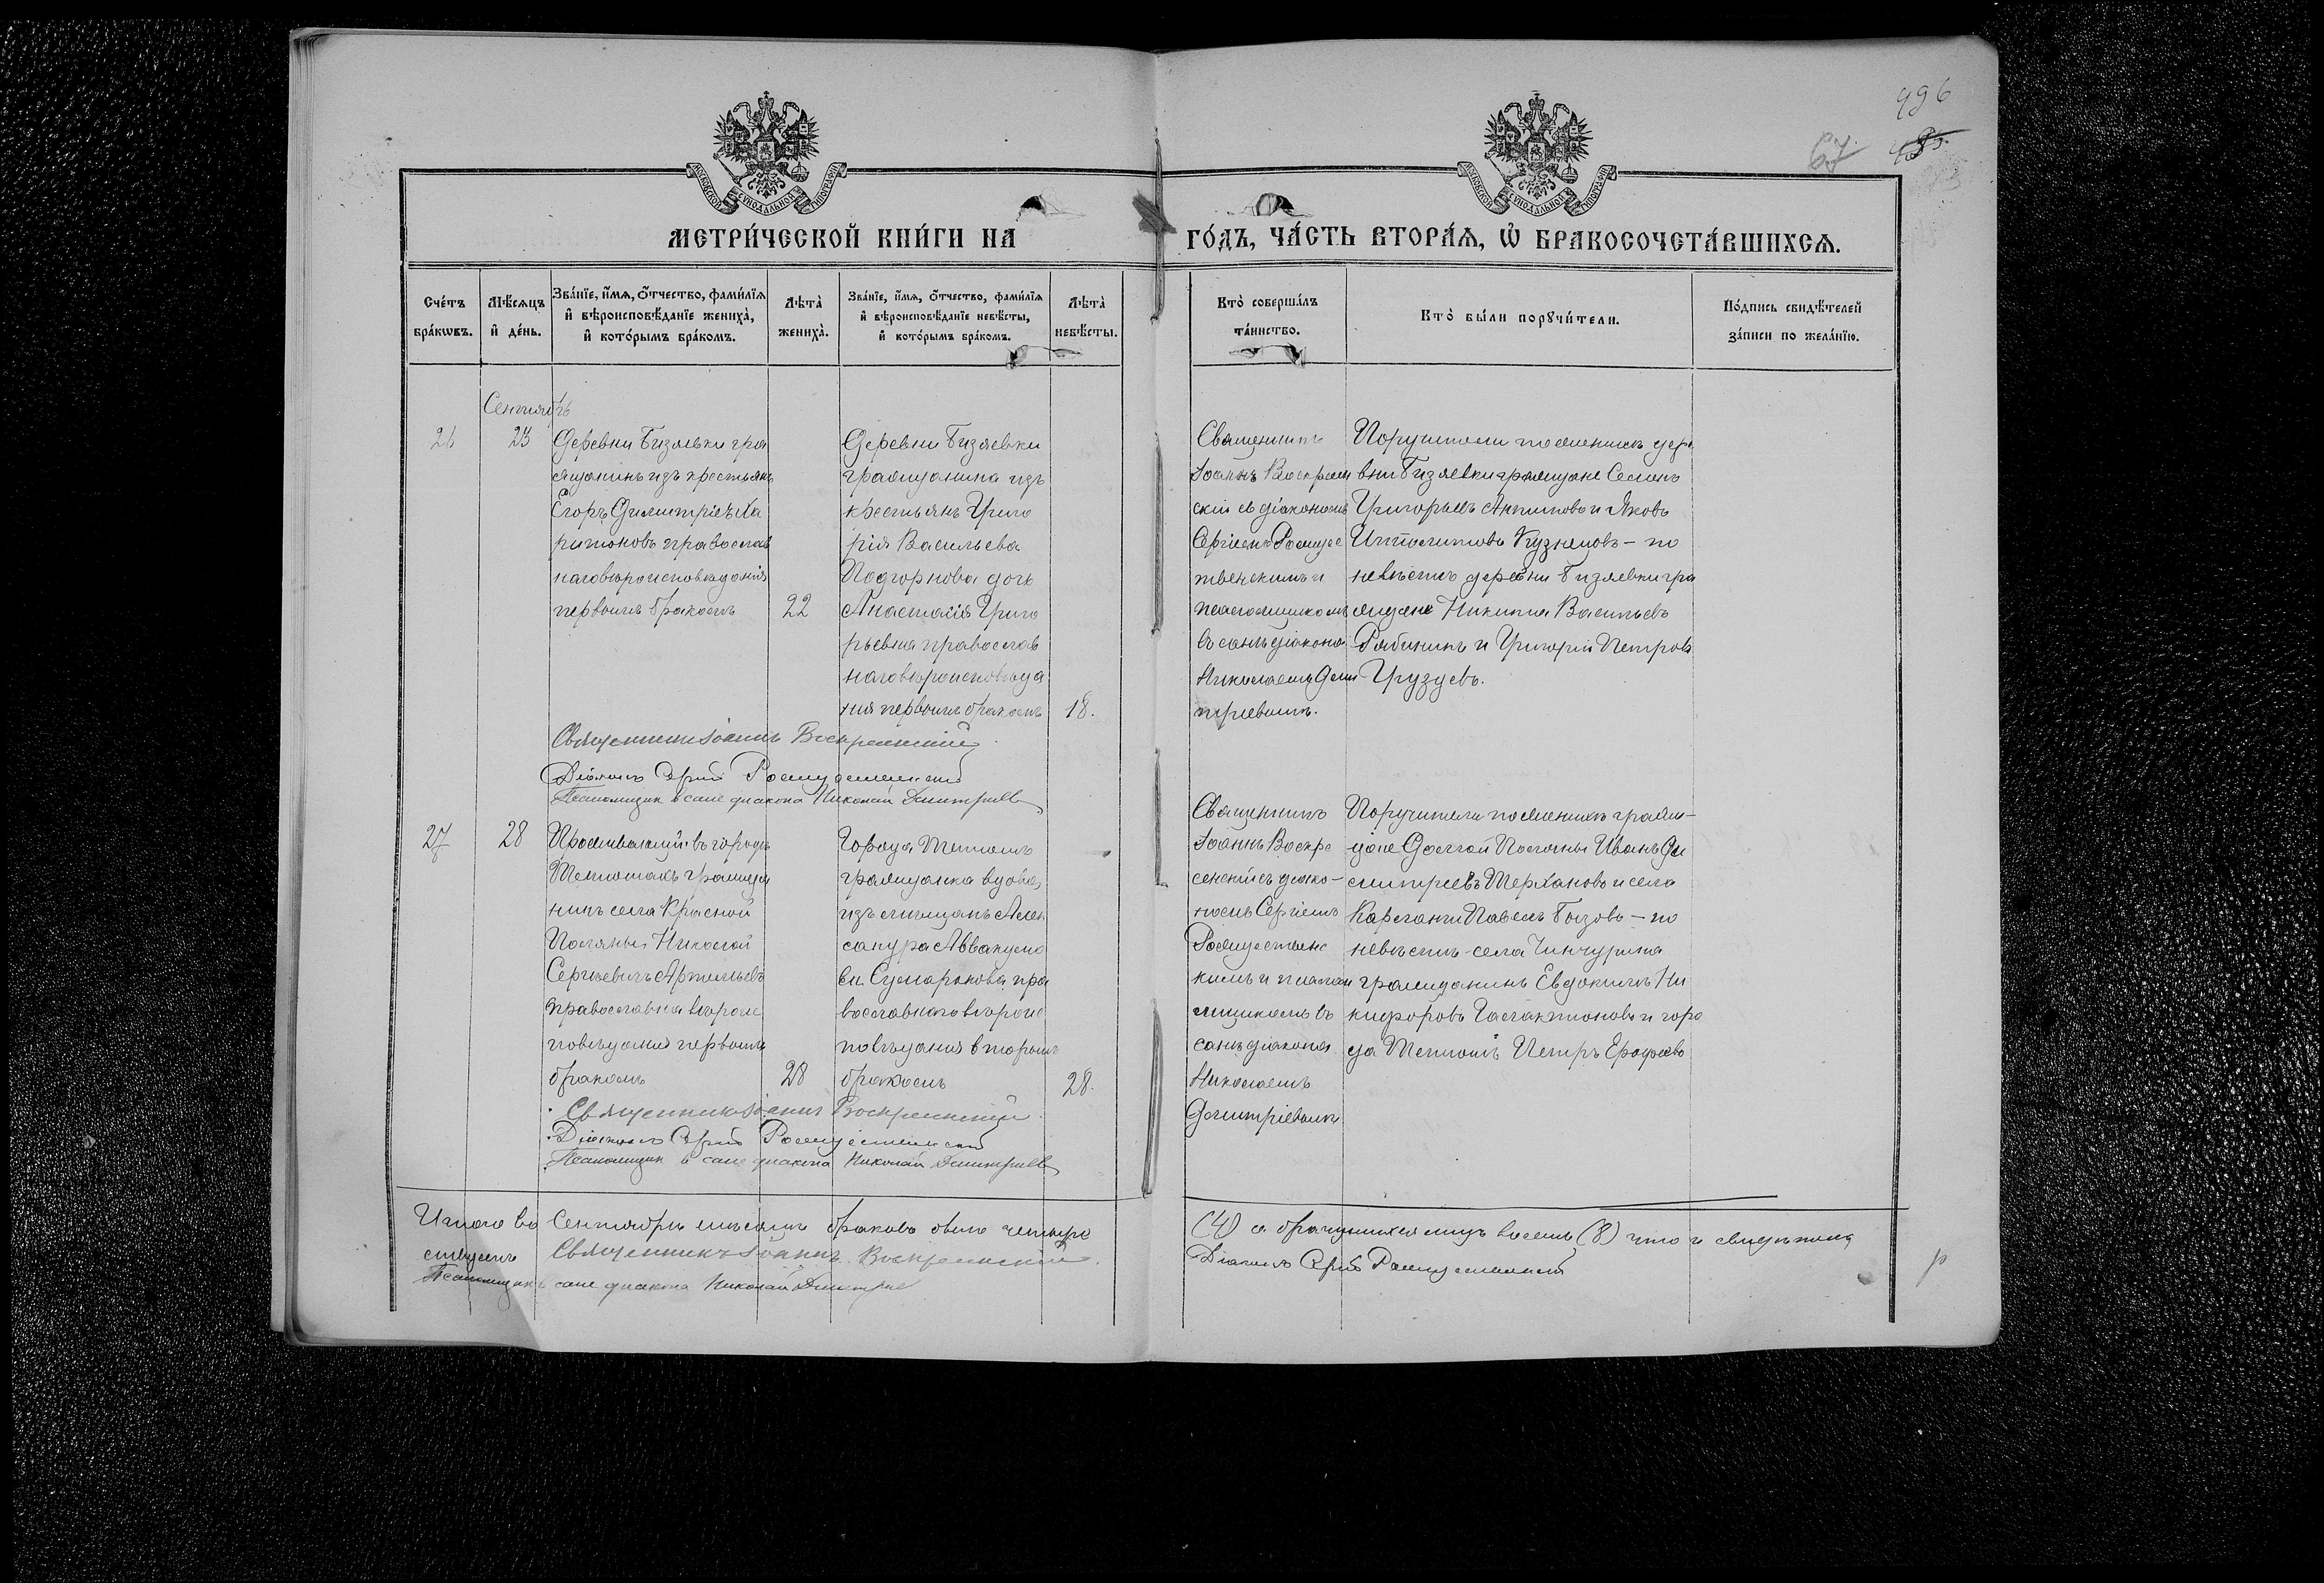 996
67
485
МОСКОВСКОЙ СѴНОДАЛЬНОЙ ТИПОГРАФІИ
МОСКОВСКОЙ СѴНОДАЛЬНОЙ ТИПОГРАФІИ
МЕТРИ́ЧЕСКОЙ КНИ́ГИ НА
ГО́ДЪ, ЧА́СТЬ ВТОРА́Ѧ, Ѽ БРАКОСОЧЕТА́ВШИХСѦ.
Сче́тъ бра́кѡвъ.
Мѣ́сѧцъ и҆ де́нь.
Зва́нїе, и҆́мѧ, ѻ҆́тчество, фами́лїѧ и҆ вѣроисповѣ́данїе жениха̀, и҆ кото́рымъ бра́комъ.
Лѣта̀ жениха̀.
Зва́нїе, и҆́мѧ, ѻ҆́тчество, фами́лїѧ и҆ вѣроисповѣ́данїе невѣ́сты, и҆ кото́рымъ бра́комъ.
Лѣта̀ невѣ́сты.
Кто̀ соверша́лъ та́инство.
Кто̀ бы́ли порꙋчи́тели.
По́дпись свидѣ́телей за́писи по жела́нїю.
Сентябрь
26
23
Деревни Бизяевки гра
жданинъ изъ крестьянъ
Егоръ Димитріевъ Ха
ритоновъ православ
наго вѣроисповѣданія
первымъ бракомъ
22
Деревни Бизяевки
гражданина изъ
крестьянъ Григо
рія Васильева
Подгорнова дочь
Анастасія Григо
рьевна православ
наго вѣроисповѣда
нія первымъ бракомъ
18.
Священникъ
Іоаннъ Воскресен
скій съ діакономъ
Сергіемъ Рождес
твенскимъ и
псаломщикомъ
въ санѣ діакона
Николаемъ Дим
тріевымъ.
Поручители по женихѣ дере
вни Бизяевки граждане Семенъ
Григорьевъ Антиповъ и Яковъ
Ипполитовъ Кузнецовъ – по
невѣстѣ деревни Бизяевки гра
ждане Никита Васильевъ
Рябининъ и Григорій Петровъ
Груздевъ.
Священникъ Іоаннъ Воскресенскій.
Діаконъ Сергій Рождественскій
Псаломщик в сане диакона Николай Дмитриев
27
28
Проживающій въ городѣ
Тетюшахъ гражда
нинъ села Красной
Поляны Николай
Сергѣевичъ Артемьевъ
православна вѣроис
повѣданія первымъ
бракомъ
28
Города Тетюшъ
гражданка вдова
изъ мѣщанъ Алек
сандра Аввакумо
вн. Сумарокова пра
вославнаго вѣроис
повѣданія вторымъ
бракомъ
28.
Священникъ
Іоаннъ Воскре
сенскій съ діако-
номъ Сергіемъ
Рождественс
кимъ и псало
мщикомъ въ
санѣ діакона
Николаемъ
Димитріевымъ
Поручители по женихѣ граж-
дане Долгой Поляны Иванъ Ди
митріевъ Терхановъ и села
Каралги Павелъ Бызовъ – по
невѣстѣ – села Чинчурина
гражданинъ Евдокимъ Ни
кифоровъ Галактионовъ и горо
да Тетюшъ Петръ Ерофеевъ
Священникъ Іоаннъ Воскресенскій.
Діаконъ Сергій Рождественскій
Псаломщик в сане диакона Николай Дмитриев
Итого въ Сентябрѣ мѣсяцѣ браковъ было четыре
(4) а брачущихся лицъ восемь (8) что и свидѣтель
ствуемъ Священникъ Іоаннъ Воскресенскій.
Діаконъ Сергій Рождественскій
Псаломщик в сане диакона Николай Дмитрие